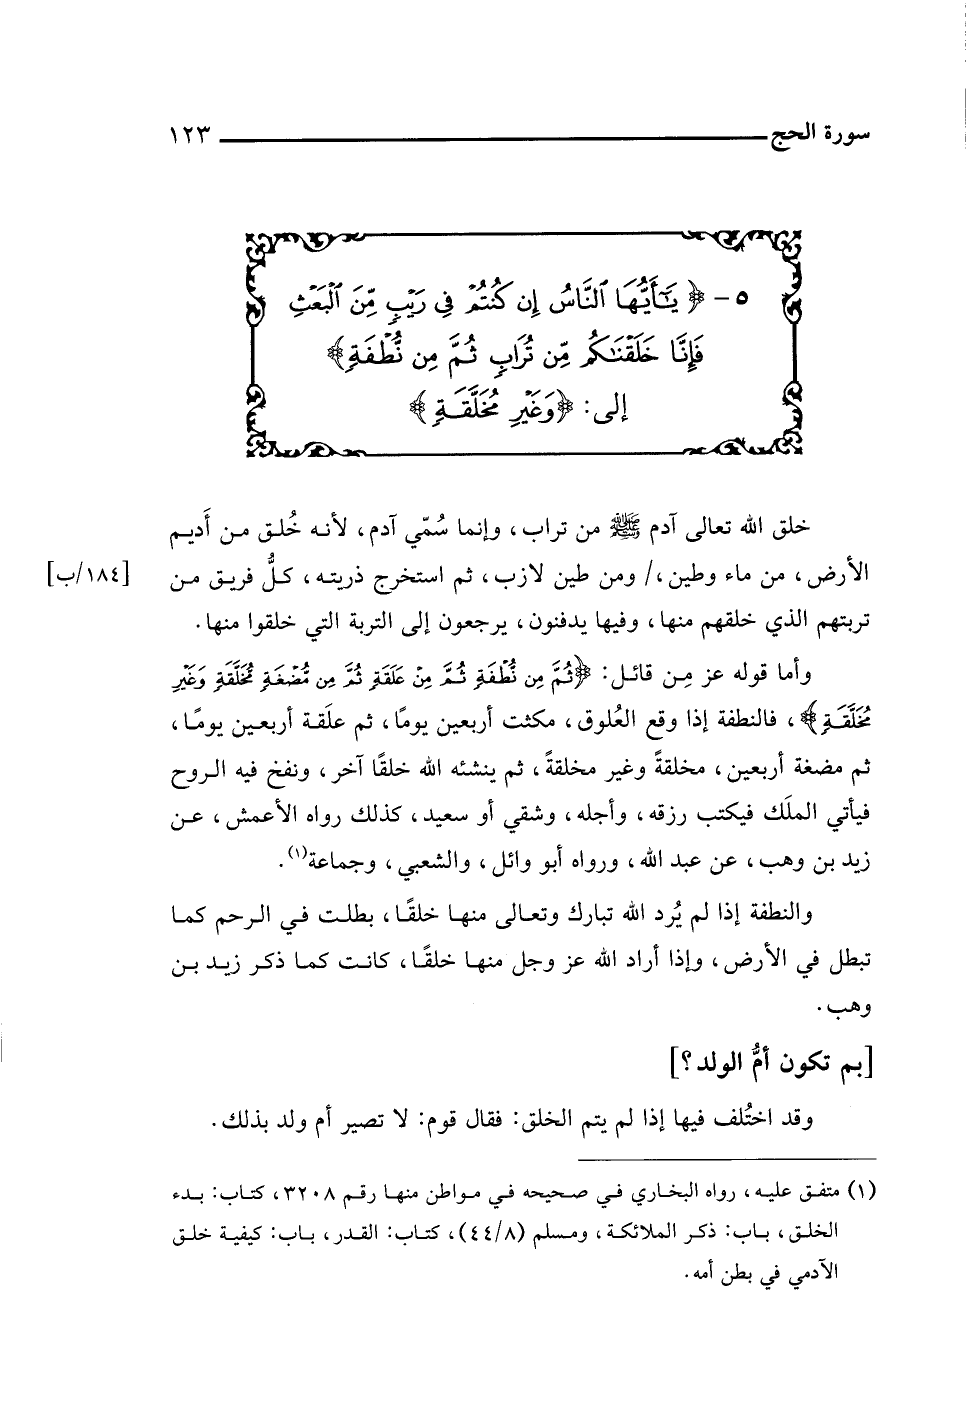 سورة الحج ١٢٣
٥ - ﴿ يَٰٓأَيُّهَا ٱلنَّاسُ إِن كُنتُمْ فِى رَيْبٍ مِّنَ ٱلْبَعْثِ
فَإِنَّا خَلَقْنَٰكُم مِّن تُرَابٍ ثُمَّ مِن نُّطْفَةٍ ﴾
إلى: ﴿ وَغَيْرِ مُخَلَّقَةٍ ﴾
خلق الله تعالى آدم ﷺ من تراب، وإنما سُمّي آدم، لأنه خُلق من أَديم
الأرض، من ماء وطين،/ ومن طين لازب، ثم استخرج ذريته، كلُّ فريق من [١٨٤/ب]
تربتهم الذي خلقهم منها، وفيها يدفنون، يرجعون إلى التربة التي خلقوا منها.
وأما قوله عز مِن قائل: ﴿ثُمَّ مِن نُّطْفَةٍ ثُمَّ مِنْ عَلَقَةٍ ثُمَّ مِن مُّضْغَةٍ مُّخَلَّقَةٍ وَغَيْرِ
مُخَلَّقَةٍ﴾، فالنطفة إذا وقع العُلوق، مكثت أربعين يومًا، ثم علَقة أربعين يومًا،
ثم مضغة أربعين، مخلقةً وغير مخلقةً، ثم ينشئه الله خلقًا آخر، ونفخ فيه الروح
فيأتي الملَك فيكتب رزقه، وأجله، وشقي أو سعيد، كذلك رواه الأعمش، عن
زيد بن وهب، عن عبد الله، ورواه أبو وائل، والشعبي، وجماعة(١).
والنطفة إذا لم يُرد الله تبارك وتعالى منها خلقًا، بطلت في الرحم كما
تبطل في الأرض، وإذا أراد الله عز وجل منها خلقًا، كانت كما ذكر زيد بن
وهب.
[بم تكون أمُّ الولد؟]
وقد اختُلف فيها إذا لم يتم الخلق: فقال قوم: لا تصير أم ولد بذلك.
(١) متفق عليه، رواه البخاري في صحيحه في مواطن منها رقم ٣٢٠٨، كتاب: بدء
الخلق، باب: ذكر الملائكة، ومسلم (٤٤/٨)، كتاب: القدر، باب: كيفية خلق
الآدمي في بطن أمه.